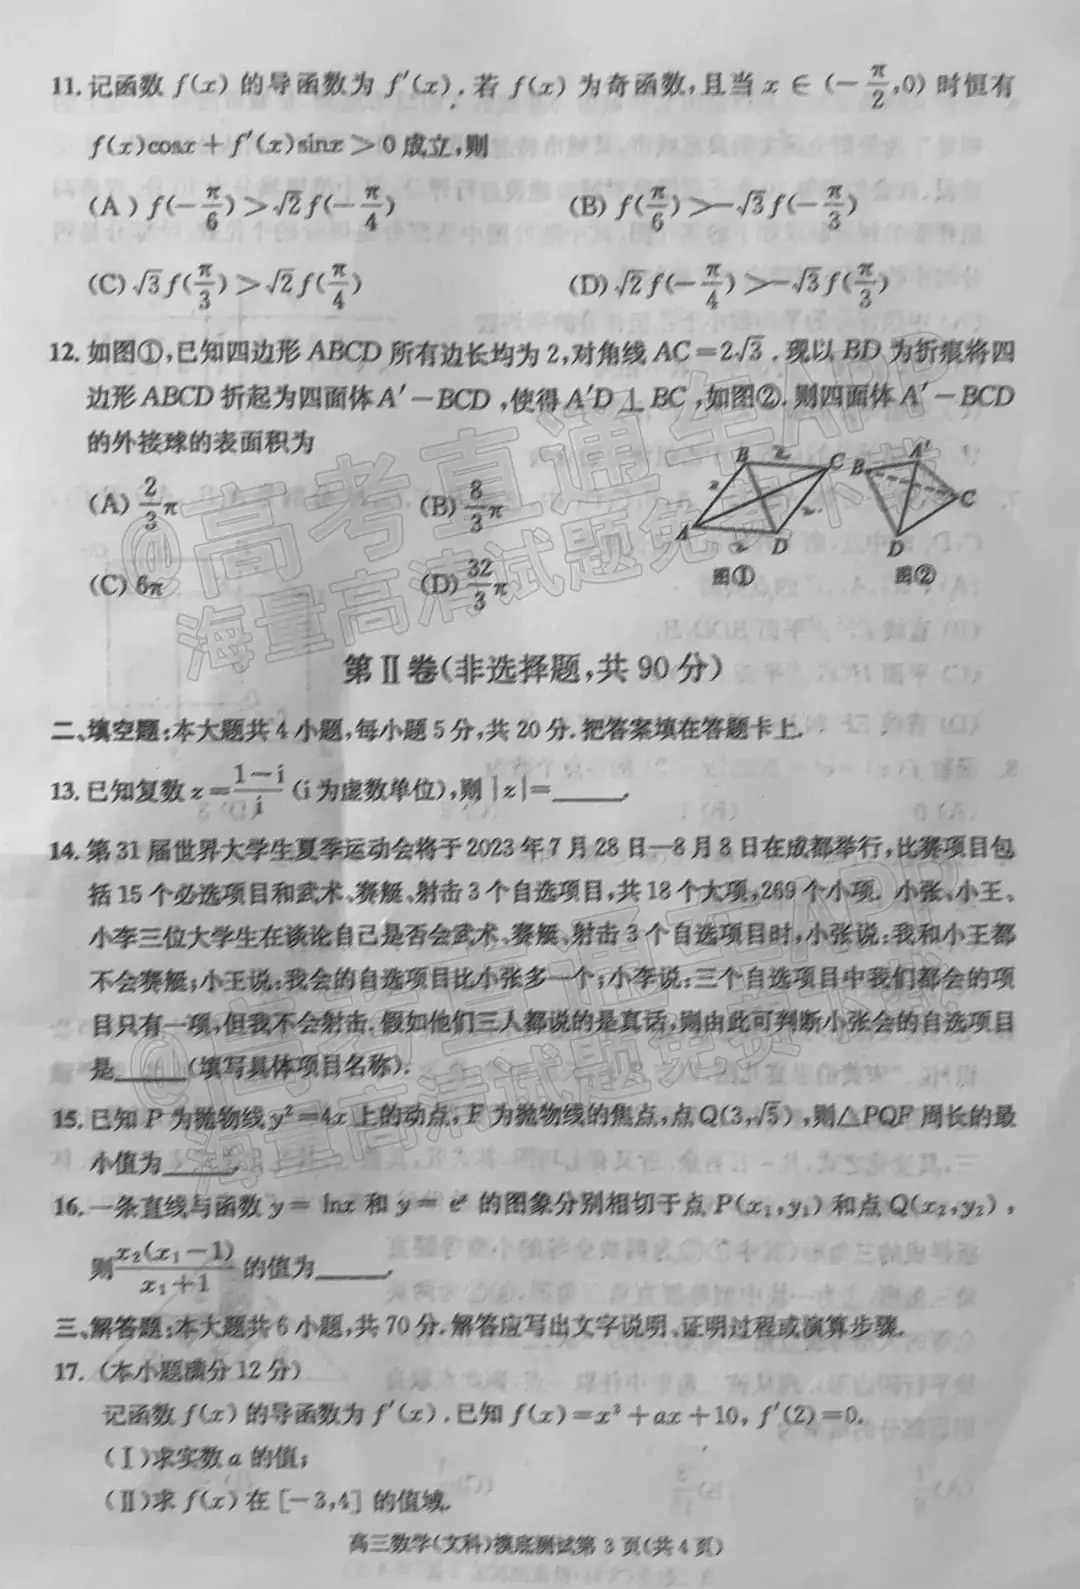 11. 记函数 f(x) 的导函数为 f′(x). 若 f(x) 为奇函数,且当 x ∈ (−π/2,0) 时恒有
f(x)cosx+f′(x)sinx>0成立,则
(A) f(−π/6)>√2f(−π/4) (B) f(π/6)>−√3f(−π/3)
(C) √3f(π/3)>√2f(π/4) (D) √2f(−π/4)>−√3f(π/3)
12. 如图①,已知四边形 ABCD 所有边长均为2,对角线 AC=2√3. 现以 BD 为折痕将四
边形 ABCD 折起为四面体 A′−BCD,使得 A′D⊥BC,如图②. 则四面体 A′−BCD
的外接球的表面积为
(A) 2/3π (B) 8/3π
(C) 6π (D) 32/3π
B 2 C 2 2 A 2 D
B A′ C D
图① 图②
第Ⅱ卷(非选择题,共90分)
二、填空题:本大题共4小题,每小题5分,共20分.把答案填在答题卡上.
13. 已知复数 z=(1−i)/i (i为虚数单位),则|z|=______.
14. 第31届世界大学生夏季运动会将于2023年7月28日—8月8日在成都举行,比赛项目包
括15个必选项目和武术、赛艇、射击3个自选项目,共18个大项,269个小项. 小张、小王、
小李三位大学生在谈论自己是否会武术、赛艇、射击3个自选项目时,小张说:我和小王都
不会赛艇;小王说:我会的自选项目比小张多一个;小李说:三个自选项目中我们都会的项
目只有一项,但我不会射击.假如他们三人都说的是真话,则由此可判断小张会的自选项目
是______(填写具体项目名称).
15. 已知 P 为抛物线 y²=4x 上的动点,F 为抛物线的焦点,点 Q(3,√5),则△PQF 周长的最
小值为______.
16. 一条直线与函数 y=lnx 和 y=eˣ 的图象分别相切于点 P(x₁,y₁) 和点 Q(x₂,y₂),
则 x₂(x₁−1)/(x₁+1) 的值为______.
三、解答题:本大题共6小题,共70分.解答应写出文字说明、证明过程或演算步骤.
17. (本小题满分12分)
记函数 f(x) 的导函数为 f′(x).已知 f(x)=x³+ax+10, f′(2)=0.
(Ⅰ)求实数 a 的值;
(Ⅱ)求 f(x) 在 [−3,4] 的值域.
高三数学(文科)摸底测试第 3 页(共4页)
@高考直通车APP
海量高清试题免费下载
@高考直通车APP
海量高清试题免费下载